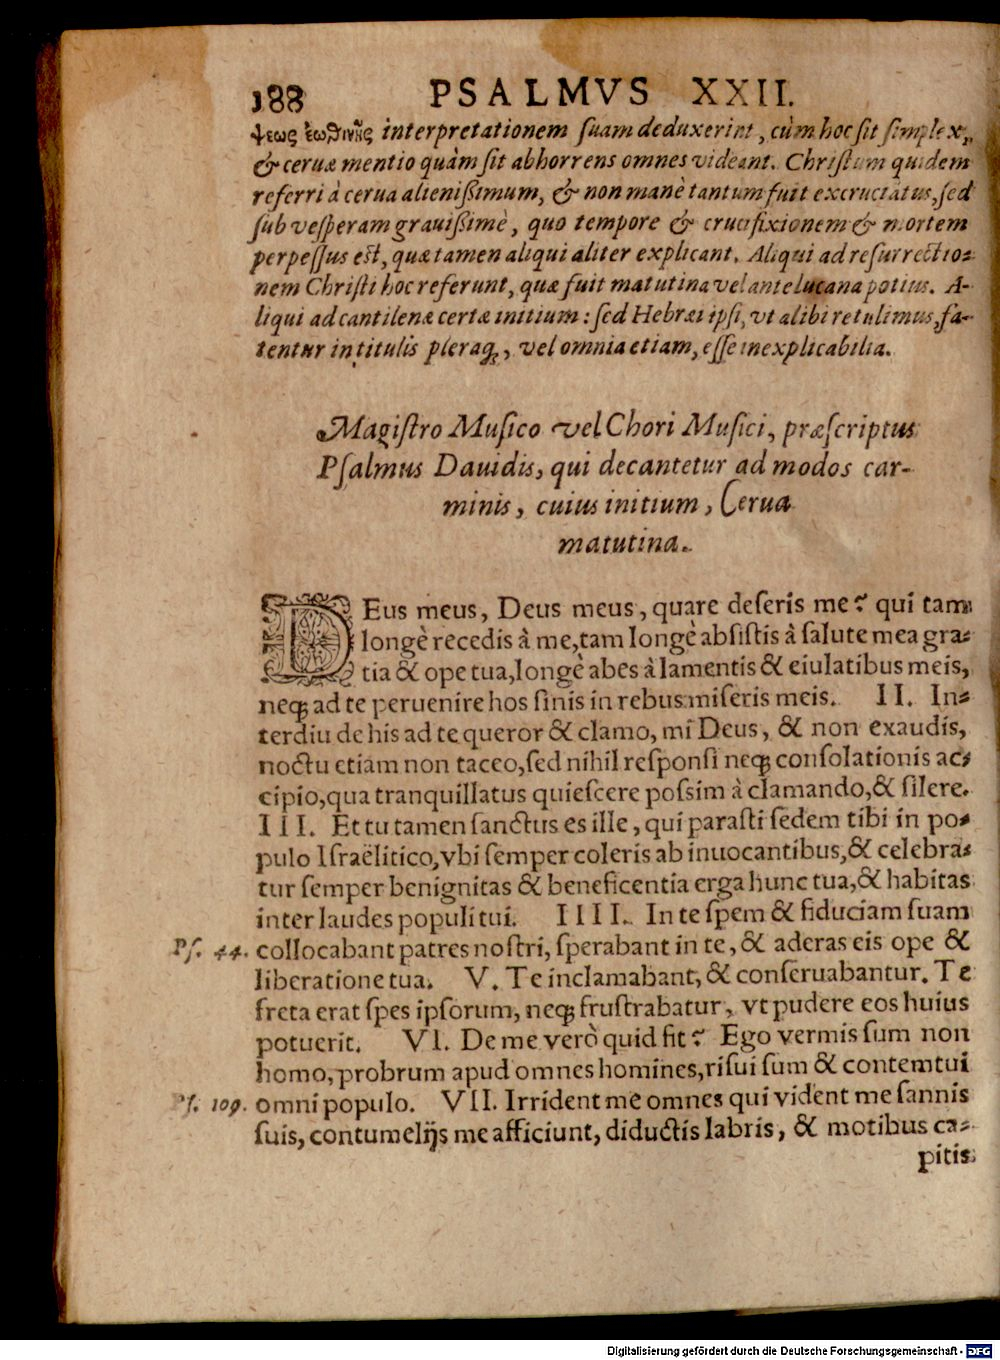 188 PSALMVS XXII.
ψεως ἑωθινῆς interpretationem ſuam deduxerint, cùm hoc ſit ſimplex,
& ceruæ mentio quàm ſit abhorrens omnes videant. Chriſtum quidem
referri à cerua alienißimum, & non manè tantum fuit excruciatus, ſed
ſub veſperam grauißimè, quo tempore & crucifixionem & mortem
perpeſſus eſt, quæ tamen aliqui aliter explicant. Aliqui ad reſurrectio-
nem Chriſti hoc referunt, quæ fuit matutina vel antelucana potius. A-
liqui ad cantilenæ certæ initium: ſed Hebræi ipſi, vt alibi retulimus, fa-
tentur in titulis pleraq́;, vel omnia etiam, eſſe inexplicabilia.
Magiſtro Muſico vel Chori Muſici, præſcriptus
Pſalmus Dauidis, qui decantetur ad modos car-
minis, cuius initium, Cerua
matutina.
DEus meus, Deus meus, quare deſeris me? qui tam
longè recedis à me, tam longè abſiſtis à ſalute mea gra-
tia & ope tua, longè abes à lamentis & eiulatibus meis,
neq; ad te peruenire hos ſinis in rebus miſeris meis. II. In-
terdiu de his ad te queror & clamo, mi Deus, & non exaudis,
noctu etiam non taceo, ſed nihil reſponſi neq; conſolationis ac-
cipio, qua tranquillatus quieſcere poſsim à clamando, & ſilere.
III. Et tu tamen ſanctus es ille, qui paraſti ſedem tibi in po-
pulo Iſraëlitico, vbi ſemper coleris ab inuocantibus, & celebra-
tur ſemper benignitas & beneficentia erga hunc tua, & habitas
inter laudes populi tui. IIII. In te ſpem & fiduciam ſuam
Pſ. 44. collocabant patres noſtri, ſperabant in te, & aderas eis ope &
liberatione tua. V. Te inclamabant, & conſeruabantur. Te
freta erat ſpes ipſorum, neq; fruſtrabatur, vt pudere eos huius
potuerit. VI. De me verò quid fit? Ego vermis ſum non
homo, probrum apud omnes homines, riſui ſum & contemtui
Pſ. 109. omni populo. VII. Irrident me omnes qui vident me ſannis
ſuis, contumelijs me afficiunt, diductis labris, & motibus ca-
pitis
Digitalisierung gefördert durch die Deutsche Forschungsgemeinschaft - DFG